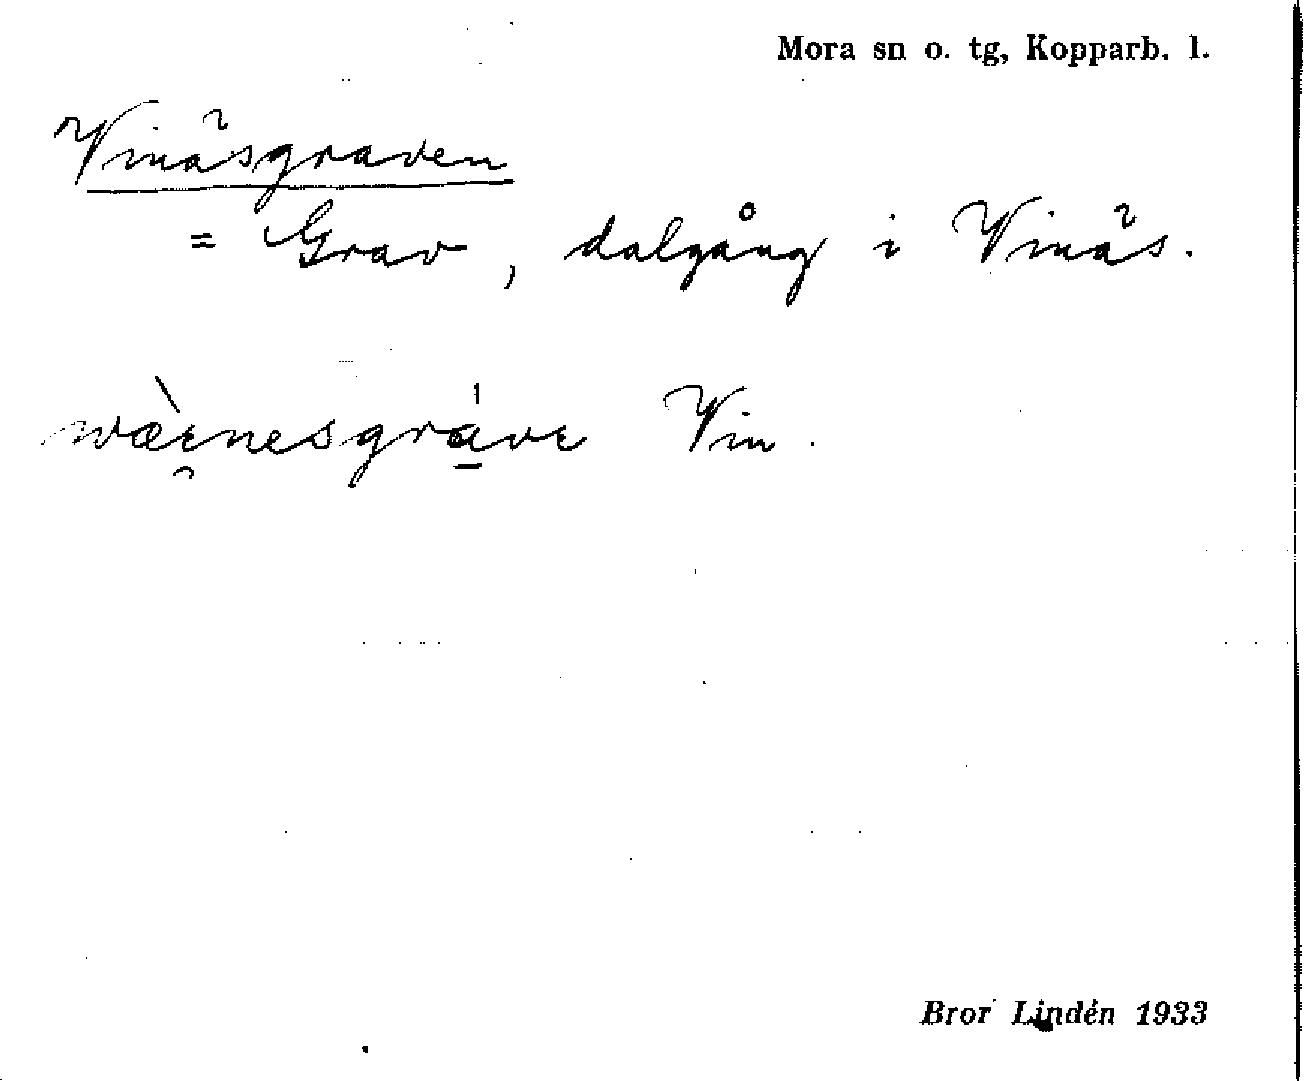 Mora sn o. tg, Kopparb. l.
Vinäsgraven
= Grav, dalgång i Vinäs.
Vin.
Bror Lindén 1933